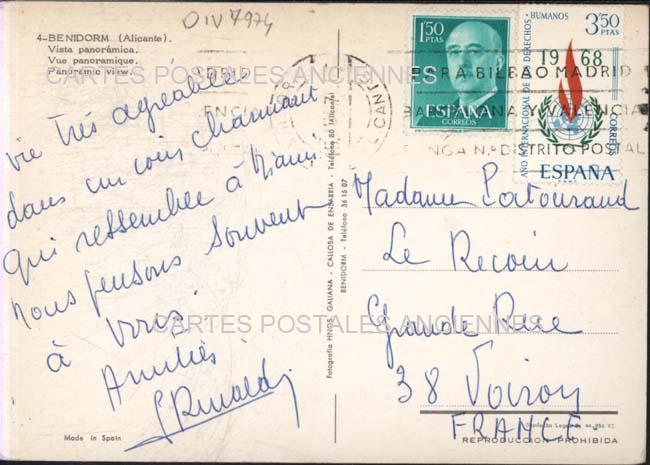 OIV 7974
4-BENIDORM (Alicante).
Vista panorámica.
Vue panoramique.
Panoramic view.
vie très agréable
dans un coin charmant
qui ressemble à Miami
nous pensons souvent
à vous
Amitiés
Made in Spain
Fotografía HNOS. GALIANA - CALLOSA DE ENSARRIA - Teléfono 80 (Alicante)
BENIDORM - Teléfono 36 15 07
1'50
PTAS
ESPAÑA
CORREOS
AÑO INTERNACIONAL DE LOS DERECHOS HUMANOS
3'50
PTAS
1968
CORREOS
ESPAÑA
BILBAO MADRID
VALENCIA
PONGA N.º DISTRITO POSTAL
Madame Latouraud
Le Recoin
Grande Rue
38 Voiron
FRANCE
Depósito Legal
REPRODUCCION PROHIBIDA
CARTES POSTALES ANCIENNES
CARTES POSTALES ANCIENNES